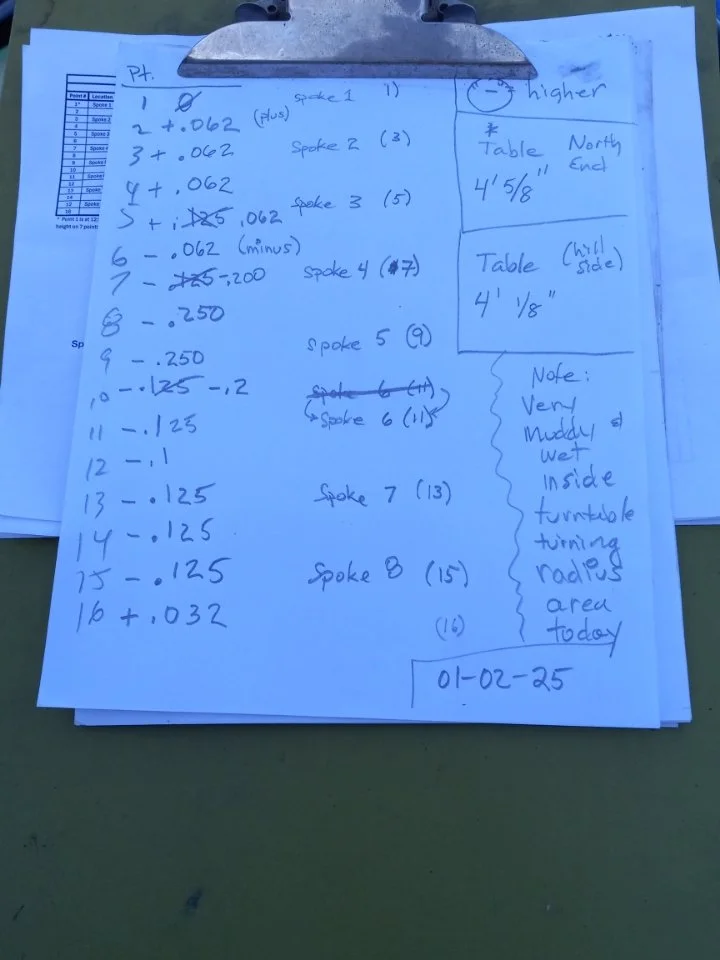 Pt.
1 0 spoke 1 1)
2 +.062 (plus)
3 + .062 Spoke 2 (3)
4 + .062
5 + .125 .062 spoke 3 (5)
6 - .062 (minus)
7 - .125 -.200 Spoke 4 (7)
8 -.250
9 -.250 Spoke 5 (9)
10 -.125 -.2 Spoke 6 (11)
11 -.125 Spoke 6 (11)
12 -.1
13 -.125 Spoke 7 (13)
14 -.125
15 -.125 Spoke 8 (15)
16 +.032 (16)
- higher
*
Table North End
4' 5/8"
Table (hill side)
4' 1/8"
Note:
Very
Muddy &
wet
inside
turntable
turning
radius
area
today
01-02-25
Point # Location
1* Spoke 1
2
3 Spoke 2
4
5 Spoke 3
6
7 Spoke
8
9 Spoke
10
11 Spoke
12
13 Spoke
14
Spoke
16
* Point 1 is at 12:
height on 7 points
Sp